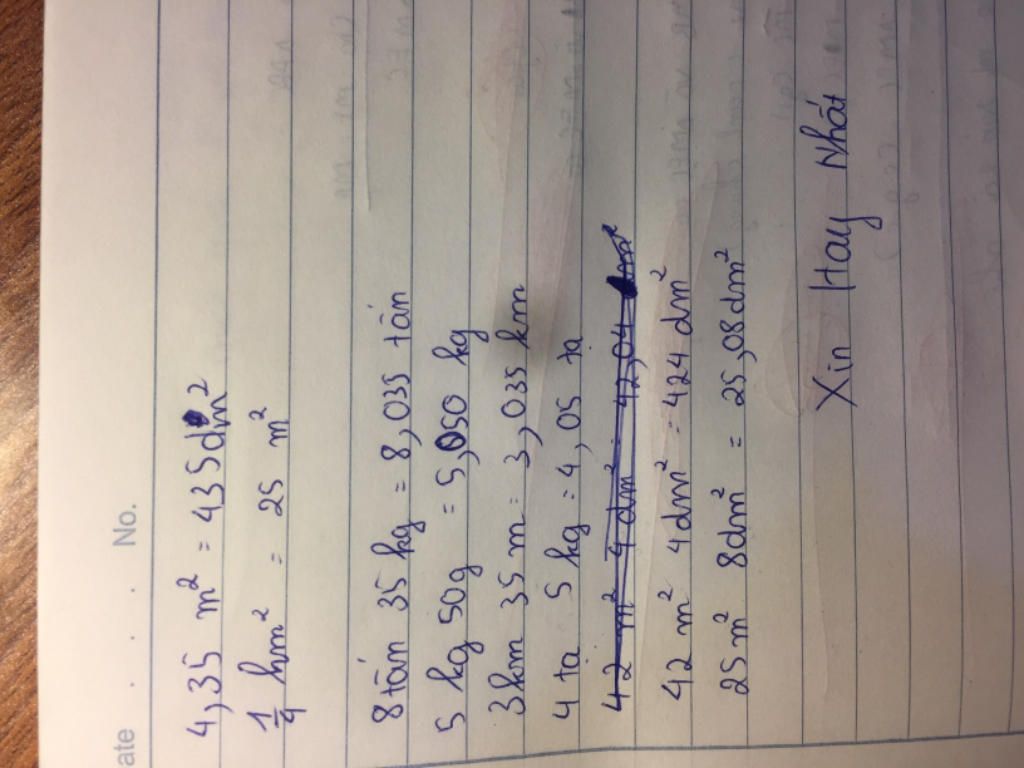 ate . . . No.
4,35 m² = 435dm²
1/4 hm² = 25 m²
8 tấn 35 kg = 8,035 tấn
5 kg 50g = 5,050 kg
3km 35 m = 3,035 km
4 tạ 5 kg = 4,05 tạ
42 m² 4 dm² 42,04
42 m² 4dm² = 424 dm²
25 m² 8dm² = 25,08dm²
Xin Hay Nhất